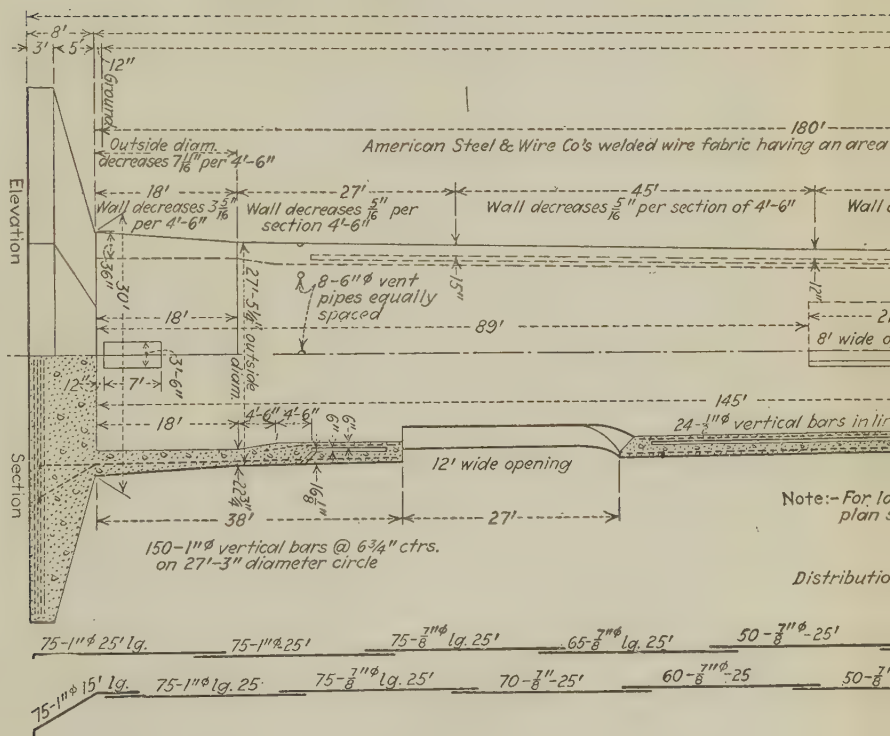 8'
3'
5'
12"
Ground
180'
Outside diam.
decreases 7 1/16" per 4'-6"
American Steel & Wire Co's welded wire fabric having an area
18'
27'
45'
Wall decreases 3 5/16"
per 4'-6"
Wall decreases 5/16" per
section 4'-6"
Wall decreases 5/16" per section of 4'-6"
Wall d
Elevation
36"
30'
27'-5 1/4" outside
diam.
8-6"φ vent
pipes equally
spaced
15"
12"
18'
89'
2
8' wide o
3'-6"
12"
7'
145'
18'
4'-6"
4'-6"
6"
6"
24-1/2"φ vertical bars in lin
12' wide opening
Section
22 3/4"
16 1/8"
38'
27'
Note:- For la
plan s
150-1"φ vertical bars @ 6 3/4" ctrs.
on 27'-3" diameter circle
Distributio
75-1"φ 25' lg.
75-1"φ-25'
75-7/8"φ lg. 25'
65-7/8"φ lg. 25'
50-7/8"φ-25'
75-1"φ 15' lg.
75-1"φ lg. 25
75-7/8"φ lg. 25'
70-7/8"-25'
60-7/8"φ-25
50-7/8"